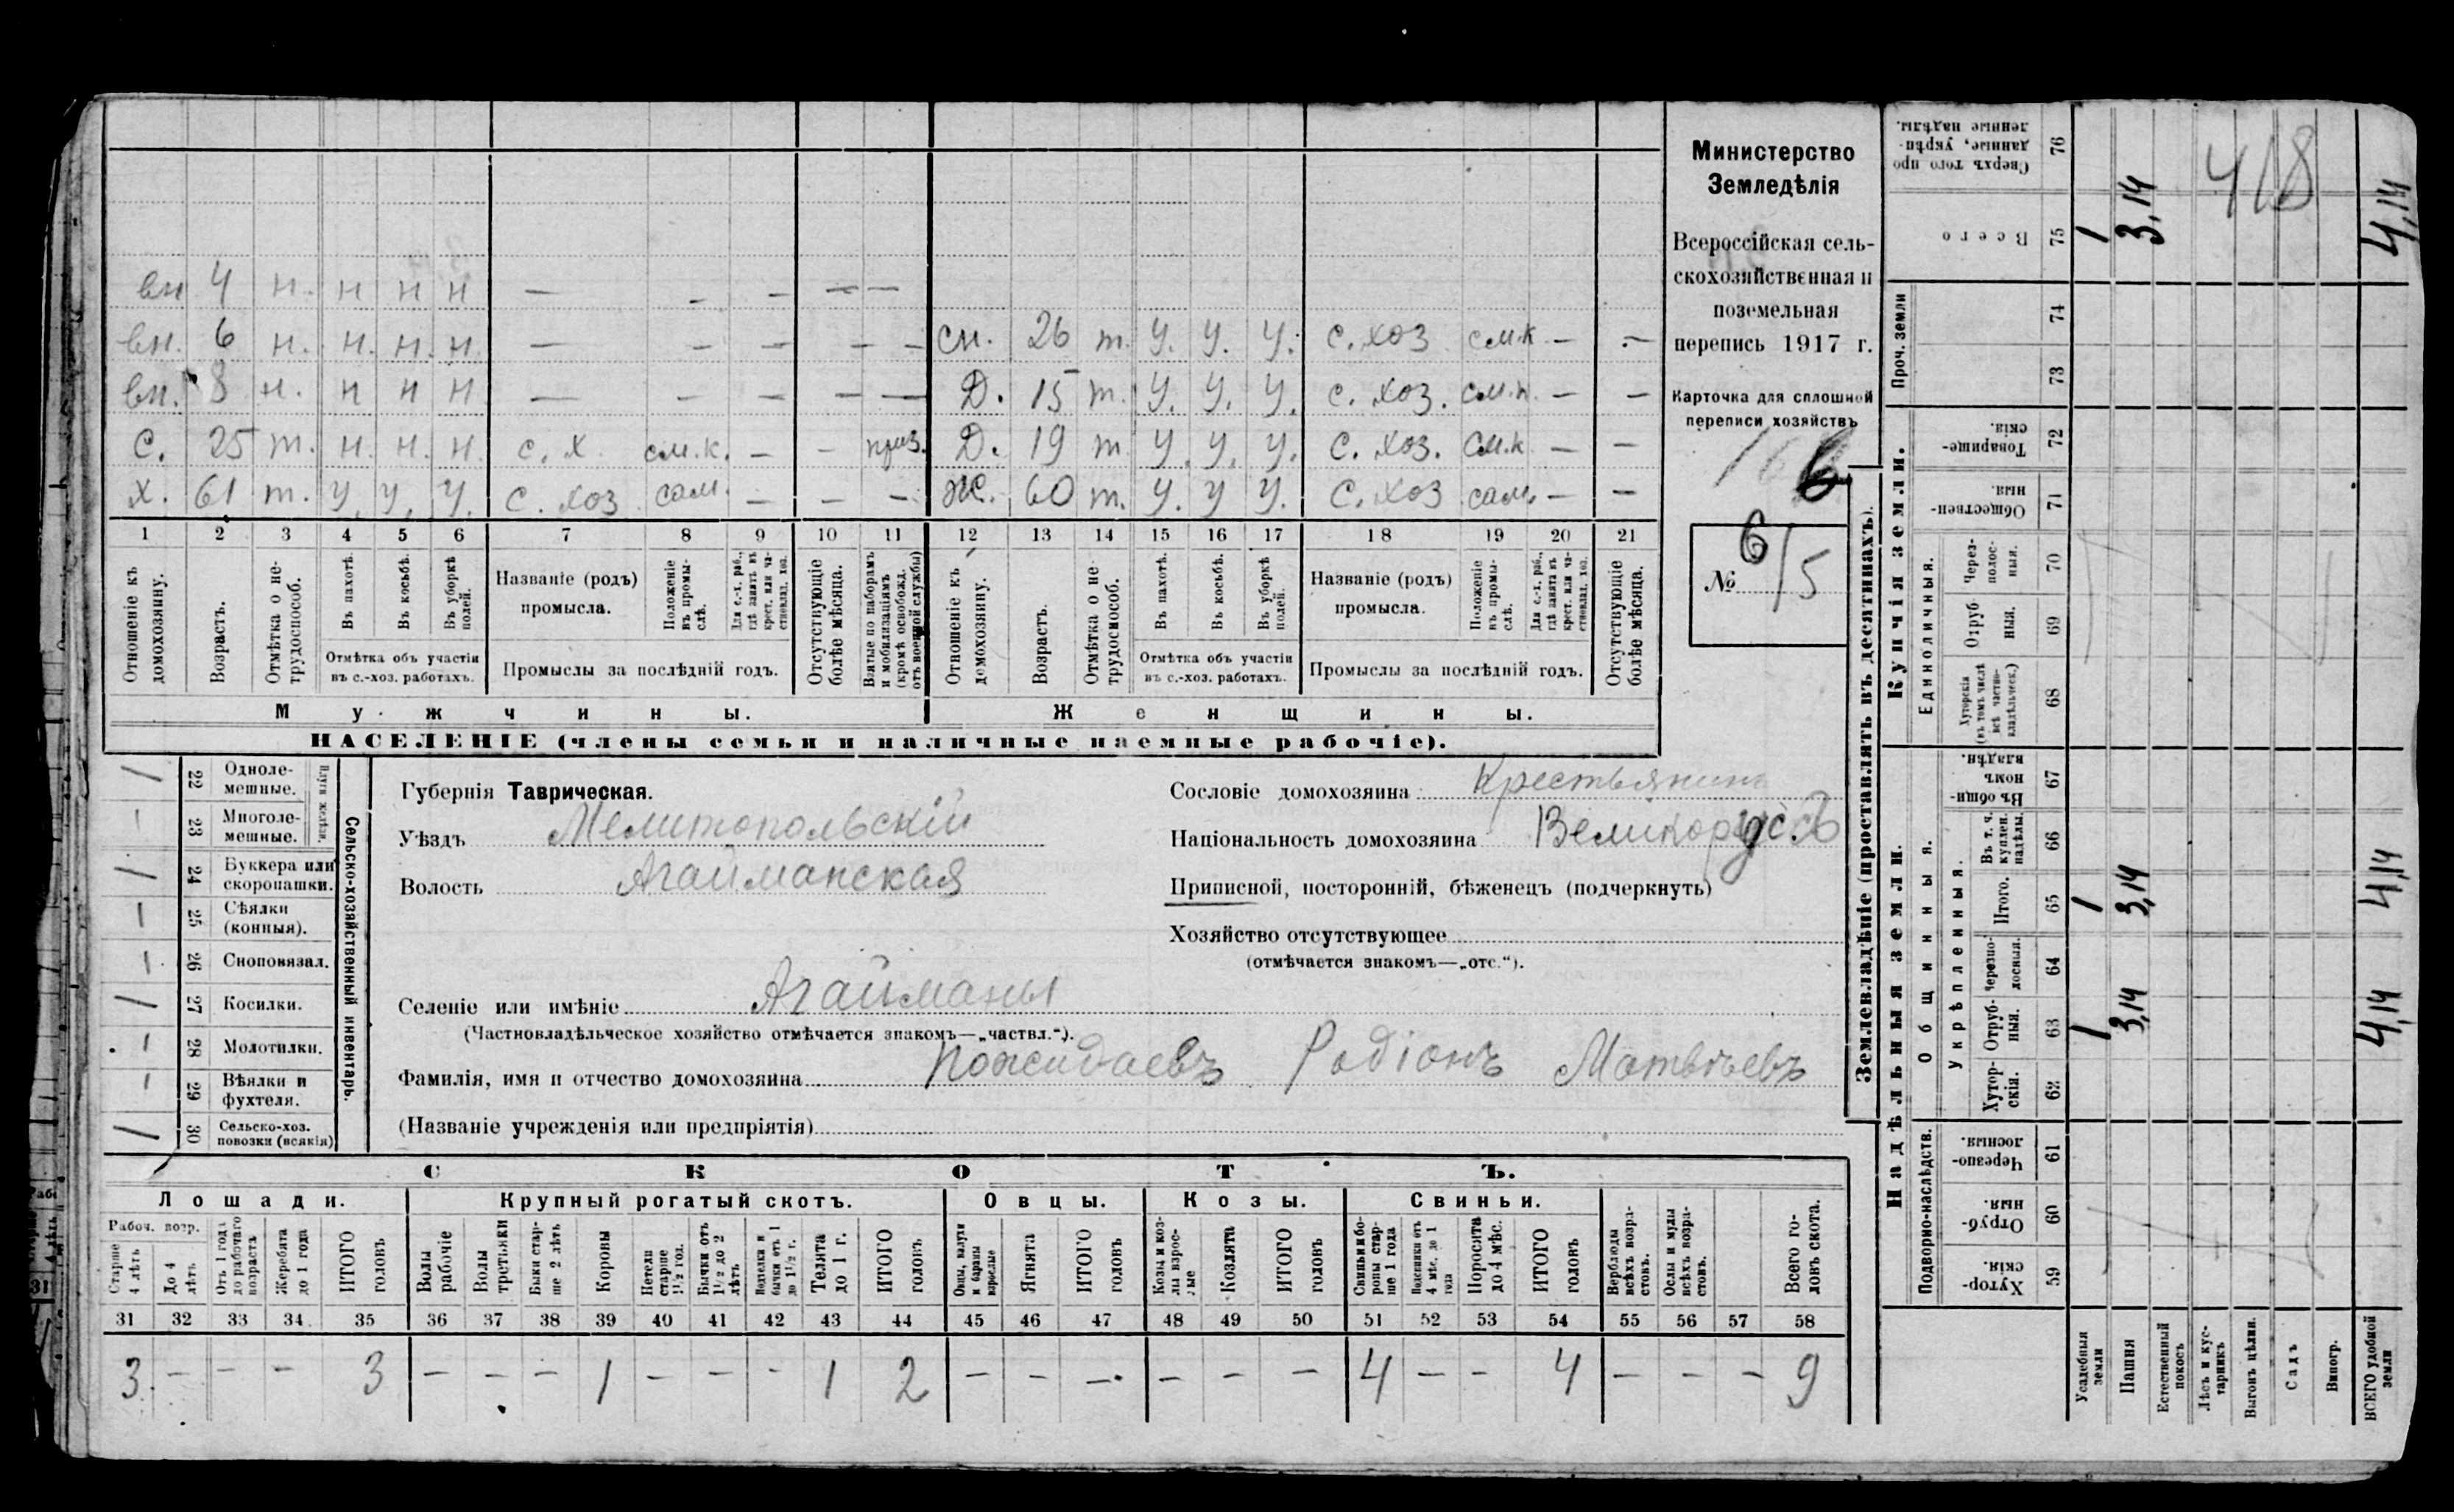 вн 4 н. н н н — - - — —
вн. 6 н. н. н. н. — - - - -
вн. 8 н. н н н — - - - —
с. 25 т. н. н. н с. х. см.к. - - приз.
х. 61 т. у. у. у. с. хоз сам. - - -
сн. 26 т. у. у. у. с. хоз см.к - -
Д. 15 т. у. у. у. с. хоз. см.к. - -
Д. 19 т у. у. у. с. хоз. см.к - -
ж. 60 т. у. у у. с. хоз сам. - -
1 2 3 4 5 6 7 8 9 10 11 12 13 14 15 16 17 18 19 20 21
Отношеніе къ домохозяину.
Возрастъ.
Отмѣтка о не-
трудоспособ.
Въ пахотѣ.
Въ косьбѣ.
Въ уборкѣ
полей.
Отмѣтка объ участіи
въ с.-хоз. работахъ.
Названіе (родъ)
промысла.
Положеніе
въ промы-
слѣ.
Для с.-х. раб.,
гдѣ занятъ въ
крест. или ча-
стновлад. хоз.
Промыслы за послѣдній годъ.
Отсутствующіе
болѣе мѣсяца.
Взятые по наборамъ
и мобилизаціямъ
(кромѣ освобожд.
отъ военной службы)
Отношеніе къ
домохозяину.
Возрастъ.
Отмѣтка о не-
трудоспособ.
Въ пахотѣ.
Въ косьбѣ.
Въ уборкѣ
полей.
Отмѣтка объ участіи
въ с.-хоз. работахъ.
Названіе (родъ)
промысла.
Положеніе
въ промы-
слѣ.
Для с.-х. раб.,
гдѣ занята въ
крест. или ча-
стновлад. хоз.
Промыслы за послѣдній годъ.
Отсутствующіе
болѣе мѣсяца.
Мужчины.
Женщины.
НАСЕЛЕНІЕ (члены семьи и наличные наемные рабочіе).
Министерство
Земледѣлія
Всероссійская сель-
скохозяйственная и
поземельная
перепись 1917 г.
Карточка для сплошной
переписи хозяйствъ
6
№ 6/5
/ 22 Одноле-
мешные.
- 23 Многоле-
мешные.
/ 24 Буккера или
скоропашки.
- 25 Сѣялки
(конныя).
- 26 Сноповязал.
/ 27 Косилки.
- 28 Молотилки.
- 29 Вѣялки и
фухтеля.
/ 30 Сельско-хоз.
повозки (всякія)
Сельско-хозяйственный инвентарь.
Губернія Таврическая.
Уѣздъ Мелитопольскій
Волость Агайманская
Селеніе или имѣніе Агайманы
(Частновладѣльческое хозяйство отмѣчается знакомъ—„частвл.“).
Фамилія, имя и отчество домохозяина Пожидаевъ Родіонъ Матвѣевъ
(Названіе учрежденія или предпріятія)
Сословіе домохозяина Крестьянинъ
Національность домохозяина Великорусъ
Приписной, посторонній, бѣженецъ (подчеркнуть)
Хозяйство отсутствующее
(отмѣчается знакомъ—„отс.“).
СКОТЪ.
Лошади. Крупный рогатый скотъ. Овцы. Козы. Свиньи.
Рабоч. возр.
Старше
4 лѣтъ
До 4
лѣтъ
Отъ 1 года
до рабочаго
возраста
Жеребята
до 1 года
ИТОГО
головъ
Волы
рабочіе
Волы
третьяки
Быки стар-
ше 2 лѣтъ
Коровы
Нетели
старше
1½ год.
Бычки отъ
1½ до 2
лѣтъ
Подтелки и
бычки отъ 1
до 1½ г.
Телята
до 1 г.
ИТОГО
головъ
Овцы, валухи
и бараны
взрослые
Ягнята
ИТОГО
головъ
Козы и коз-
лы взрос-
лые
Козлята
ИТОГО
головъ
Свиньи и бо-
ровы стар-
ше 1 года
Подсвинки отъ
4 мѣс. до 1
года
Поросята
до 4 мѣс.
ИТОГО
головъ
Верблюды
всѣхъ возра-
стовъ.
Ослы и мулы
всѣхъ возра-
стовъ.
Всего го-
ловъ скота.
31 32 33 34 35 36 37 38 39 40 41 42 43 44 45 46 47 48 49 50 51 52 53 54 55 56 57 58
3 - - - 3 - - - 1 - - - 1 2 - - - - - - 4 - - 4 - - - 9
Землевладѣніе (проставлять въ десятинахъ).
Надѣльныя земли. Купчія земли. Проч. земли
Подворно-наслѣдств. Общинныя. Единоличныя.
Укрѣпленныя.
Хутор-
скія. 59
Отруб-
ныя. 60
Черезпо-
лосныя. 61
Хутор-
скія. 62
Отруб-
ныя. 63
Черезпо-
лосныя. 64
Итого. 65
Въ т. ч.
куплен.
надѣлы. 66
Въ общи-
номъ
владѣн. 67
Хуторскія
(въ томъ числѣ
всѣ частно-
владѣльческ.) 68
Отруб-
ныя. 69
Через-
полос-
ныя. 70
Обществен-
ныя. 71
Товарище-
скія. 72
73
74
Всего 75
Сверхъ того про
данные, укрѣп-
ленные надѣлы. 76
Усадебныя
земли
Пашня
Естественный
покосъ
Лѣсъ и кус-
тарникъ
Выгонъ цѣлин.
Садъ
Виногр.
ВСЕГО удобной
земли
1 3,14 4,14
1 3,14 4,14
1 3,14 4,14
418
31